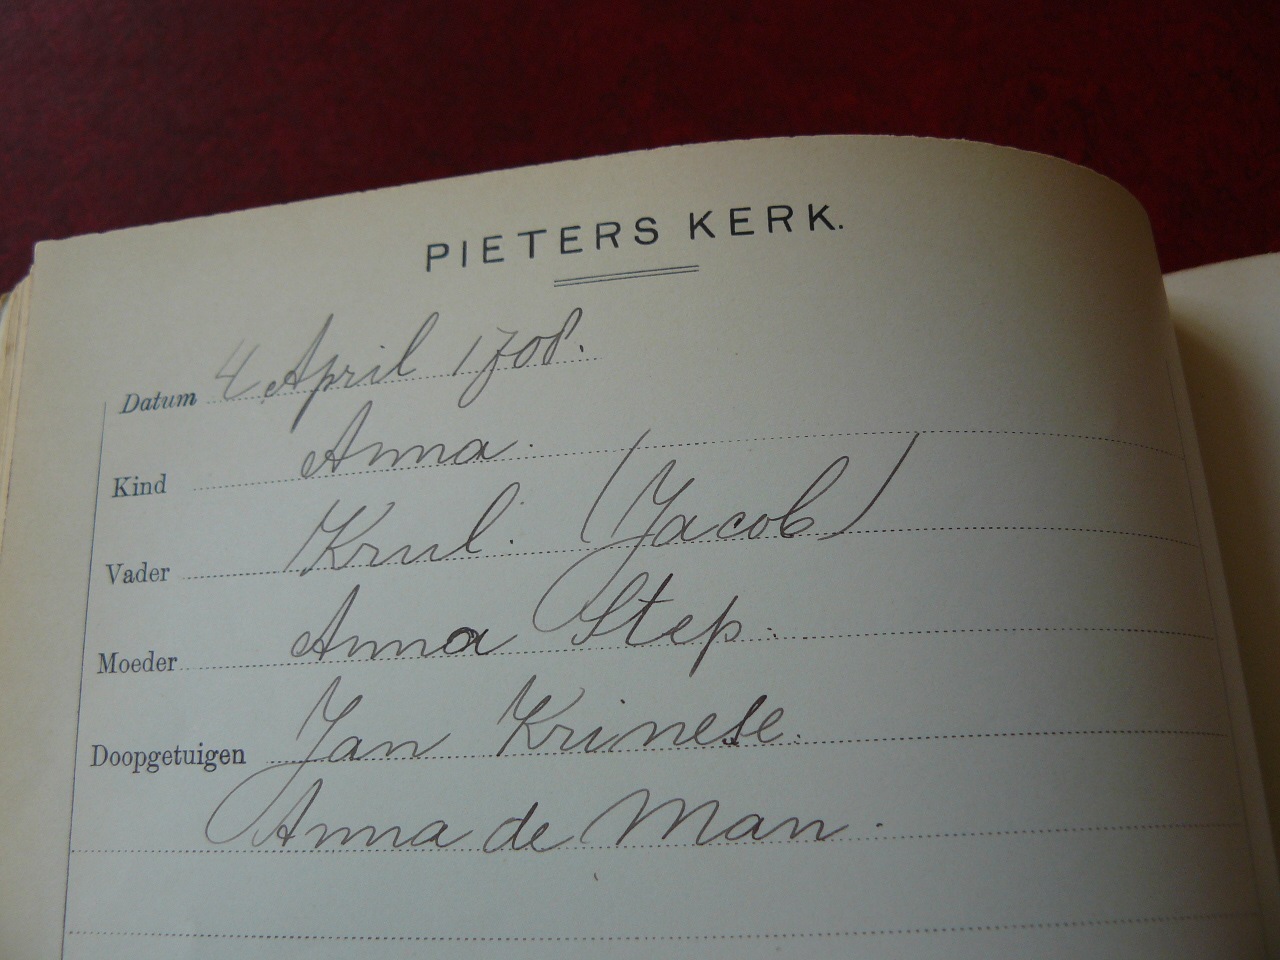 PIETERS KERK.
Datum 4 April 1708.
Kind Anna.
Vader Krul. (Jacob)
Moeder Anna Step.
Doopgetuigen Jan Krinese.
Anna de Man.